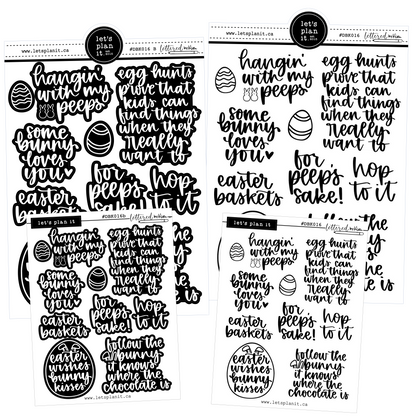 let's
plan
it
www.letsplanit.ca
#DBK016 B
lettered
hangin'
with my
peeps
egg hunts
prove that
kids can
find things
when they
really
want to
some
bunny
loves
you
easter
baskets
for
peep's
sake!
hop
to it
let's
plan
it
www.letsplanit.ca
#DBK016
lettered
hangin'
with my
peeps
egg hunts
prove that
kids can
find things
when they
really
want to
some
bunny
loves
you
easter
baskets
for
peep's
sake!
hop
to it
let's plan it
#DBK016b
lettered
hangin'
with my
peeps
egg hunts
prove that
kids can
find things
when they
really
want to
some
bunny
loves
you
easter
baskets
for
peep's
sake!
hop
to it
easter
wishes
bunny
kisses
follow the
bunny
it knows
where the
chocolate is
www.letsplanit.ca
let's plan it
#DBK016
lettered
hangin'
with my
peeps
egg hunts
prove that
kids can
find things
when they
really
want to
some
bunny
loves
you
easter
baskets
for
peep's
sake!
hop
to it
easter
wishes
bunny
kisses
follow the
bunny
it knows
where the
chocolate is
www.letsplanit.ca